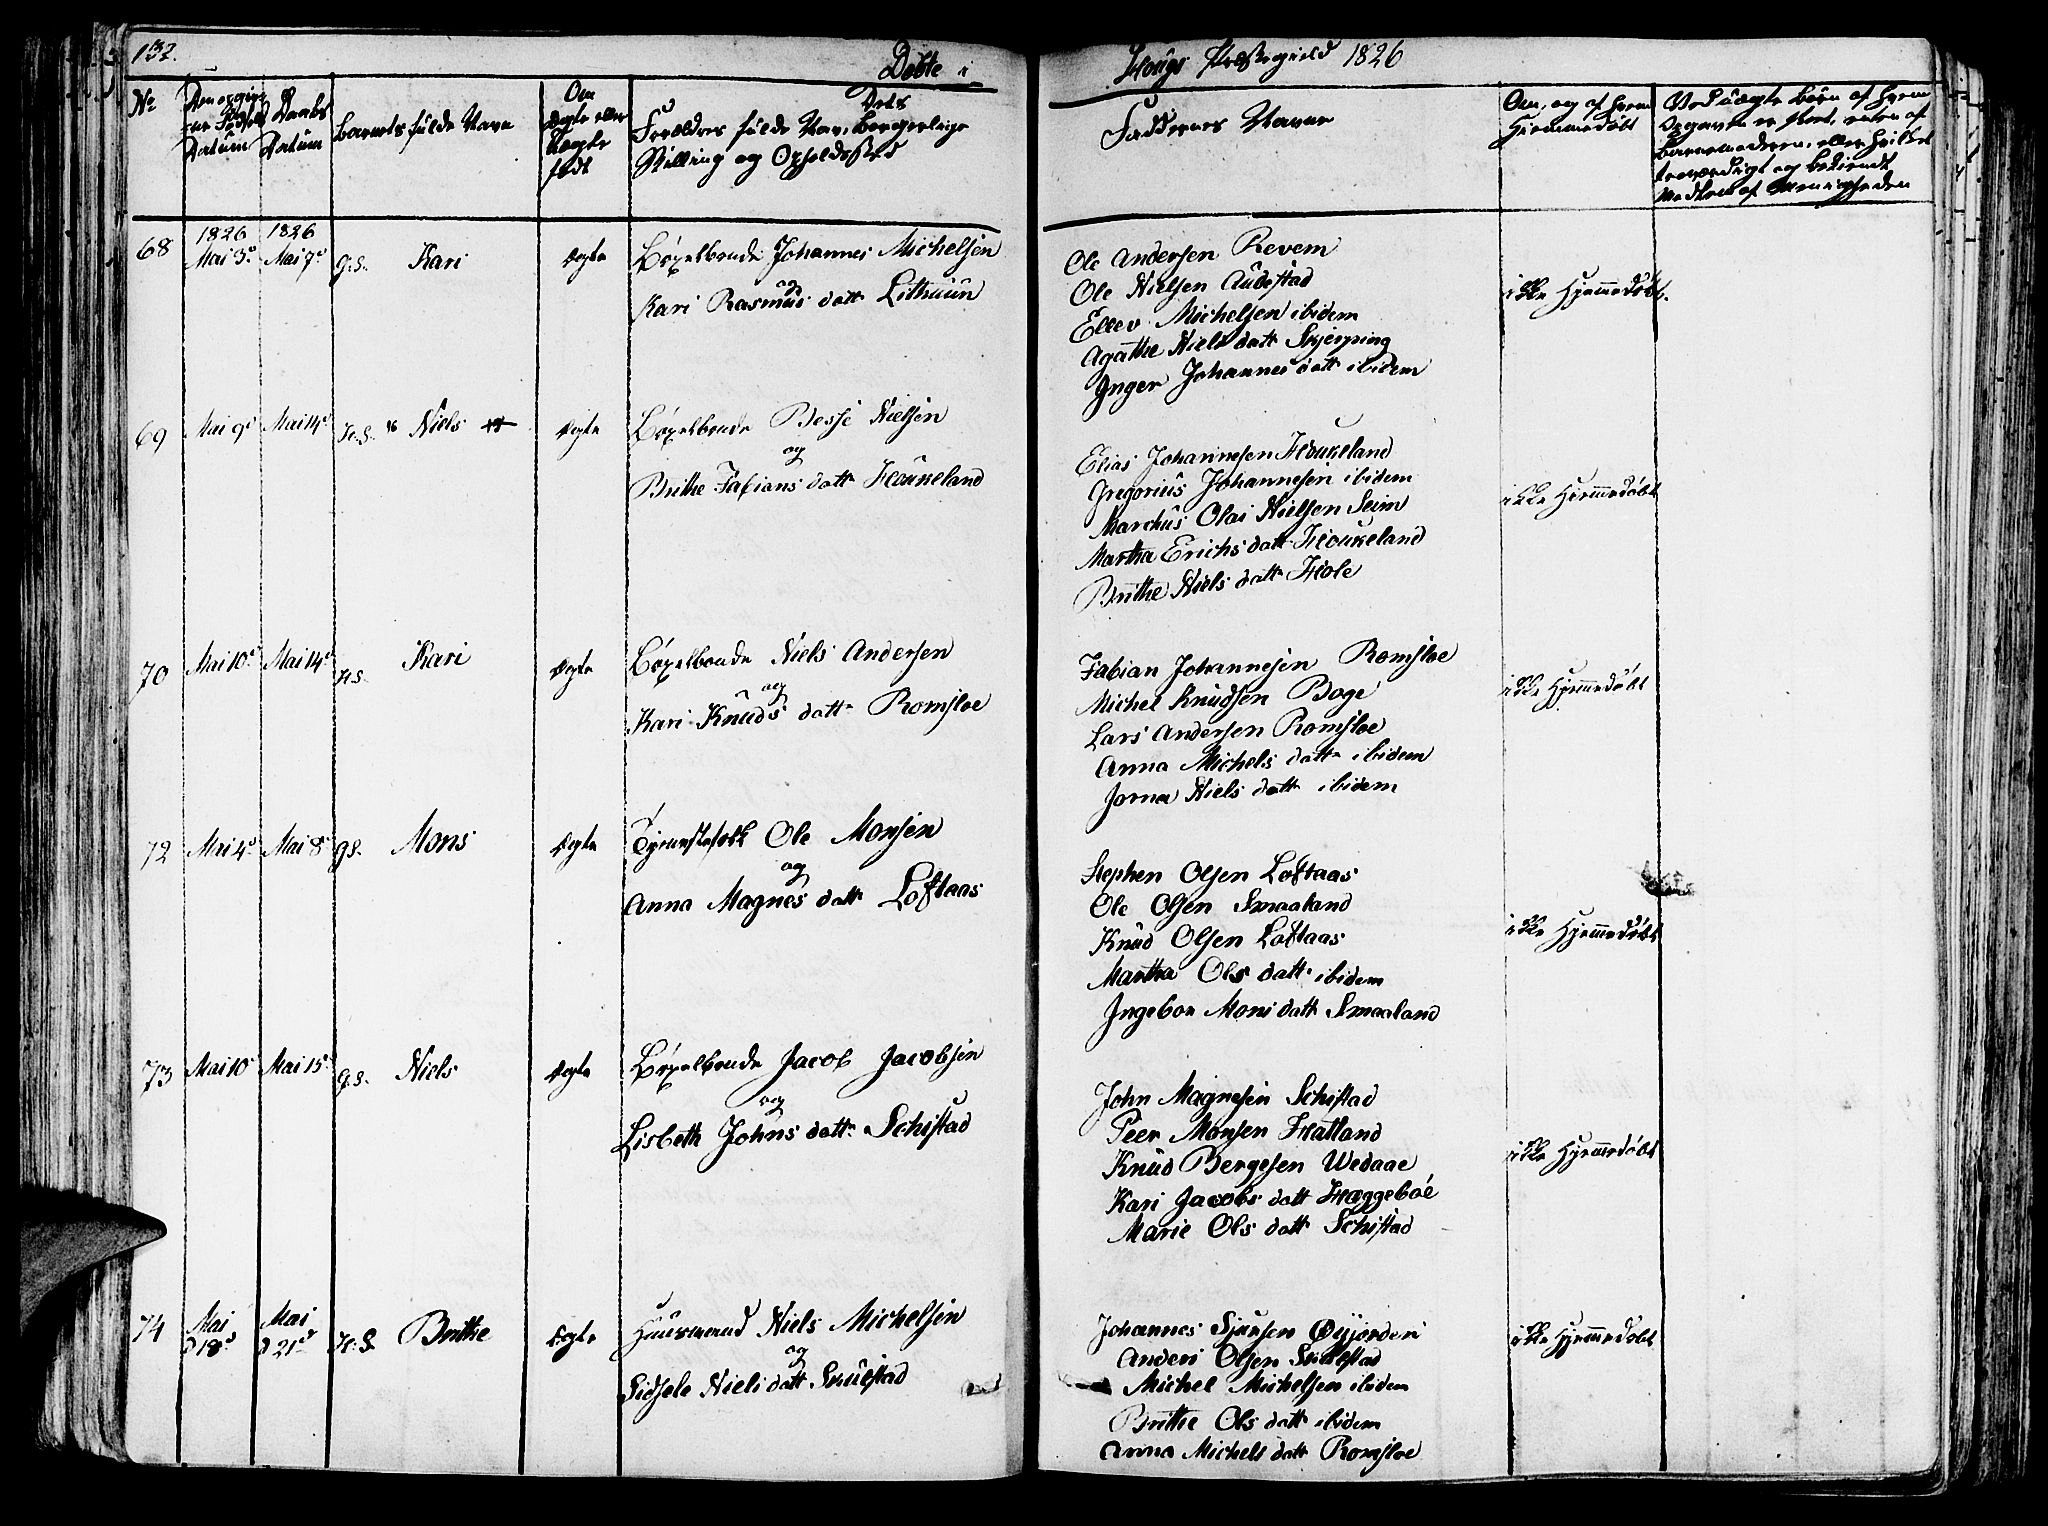 132.
Døbte i
Hougs Præstegield 1826
No
Datum
Daabs Datum
Barnets fulde Navn
Om ægte eller uægte født
Forældres fulde Navn, Borgerlige
Stilling og Opholdssted
Faddernes Navne
Om, og af hvem
Hjemmedøbt
Ved uægte Børn af hvem
68 1826 Mai 3d 1826 Mai 7d G.S. Kari ægte
Bøxelbonde Johannes Michelsen
og
Kari Rasmus datt Lithuun
Ole Andersen Revem
Ole Nielsen Audestad
Ellev Michelsen ibidem
Agathe Niels datt Skjerping
Inger Johannes datt ibidem
ikke Hjemmedøbt.
69 Mai 9d Mai 14d H.S. Niels ægte
Bøxelbonde Besse Nielsen
og
Brithe Fabians datt Houkeland
Elias Johannesen Houkeland
Gregorius Johannesen ibidem
Marchus Olai Nielsen Seim
Martha Erichs datt Houkeland
Brithe Niels datt Hole
ikke Hjemmedøbt
70 Mai 10d Mai 14d H.S. Kari ægte
Bøxelbonde Niels Andersen
og
Kari Knuds datt Romsloe
Fabian Johannesen Romsloe
Michel Knudsen Boge
Lars Andersen Romsloe
Anna Michels datt ibidem
Jorna Niels datt ibidem
ikke Hjemmedøbt
72 Mai 4d Mai 8d G.S. Mons ægte
Tjenestefolk Ole Monsen
og
Anna Magnes datt Loftaas
Stephen Olsen Loftaas
Ole Olsen Smaaland
Knud Olsen Loftaas
Martha Ols datt ibidem
Ingebor Mons datt Smaaland
ikke Hjemmedøbt
73 Mai 10 Mai 15d G.S. Niels ægte
Bøxelbonde Jacob Jacobsen
og
Lisbeth Johns datt Schistad
John Magnesen Schistad
Peer Monsen Hatland
Knud Bergesen Wedaae
Kari Jacobs datt Hæggeboe
Marie Ols datt Schistad
ikke Hjemmedøbt
74 Mai d 18d Mai d 21d H.S. Brithe ægte
Huusmand Niels Michelsen
og
Sidsele Niels datt Skulstad
Johannes Sjursen Øyjorden
Anders Olsen Skulstad
Michel Michelsen ibidem
Brithe Ols datt ibidem
Anna Michels datt Romsloe
ikke Hjemmedøbt